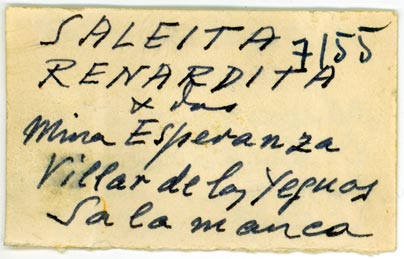 SALEITA 7/55
RENARDITA
Mina Esperanza
Villar de las Yeguas
Salamanca